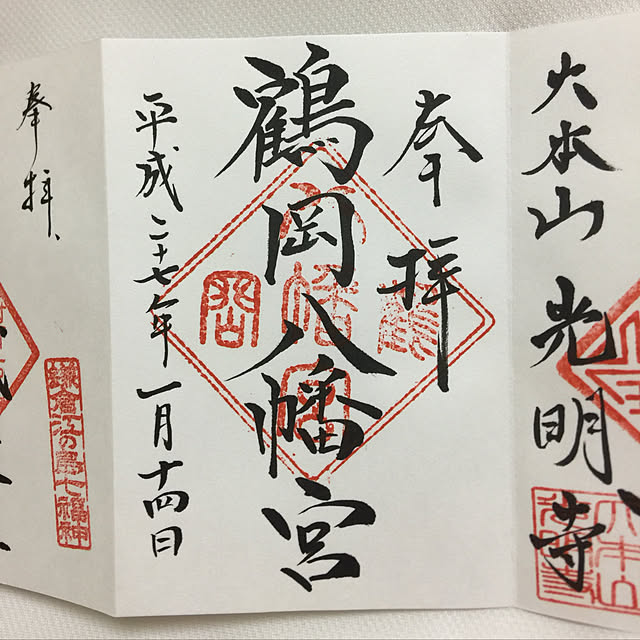 大本山 光明寺
奉拝
鶴岡八幡宮
平成二十七年一月十四日
奉拝、
鎌倉江の島七福神